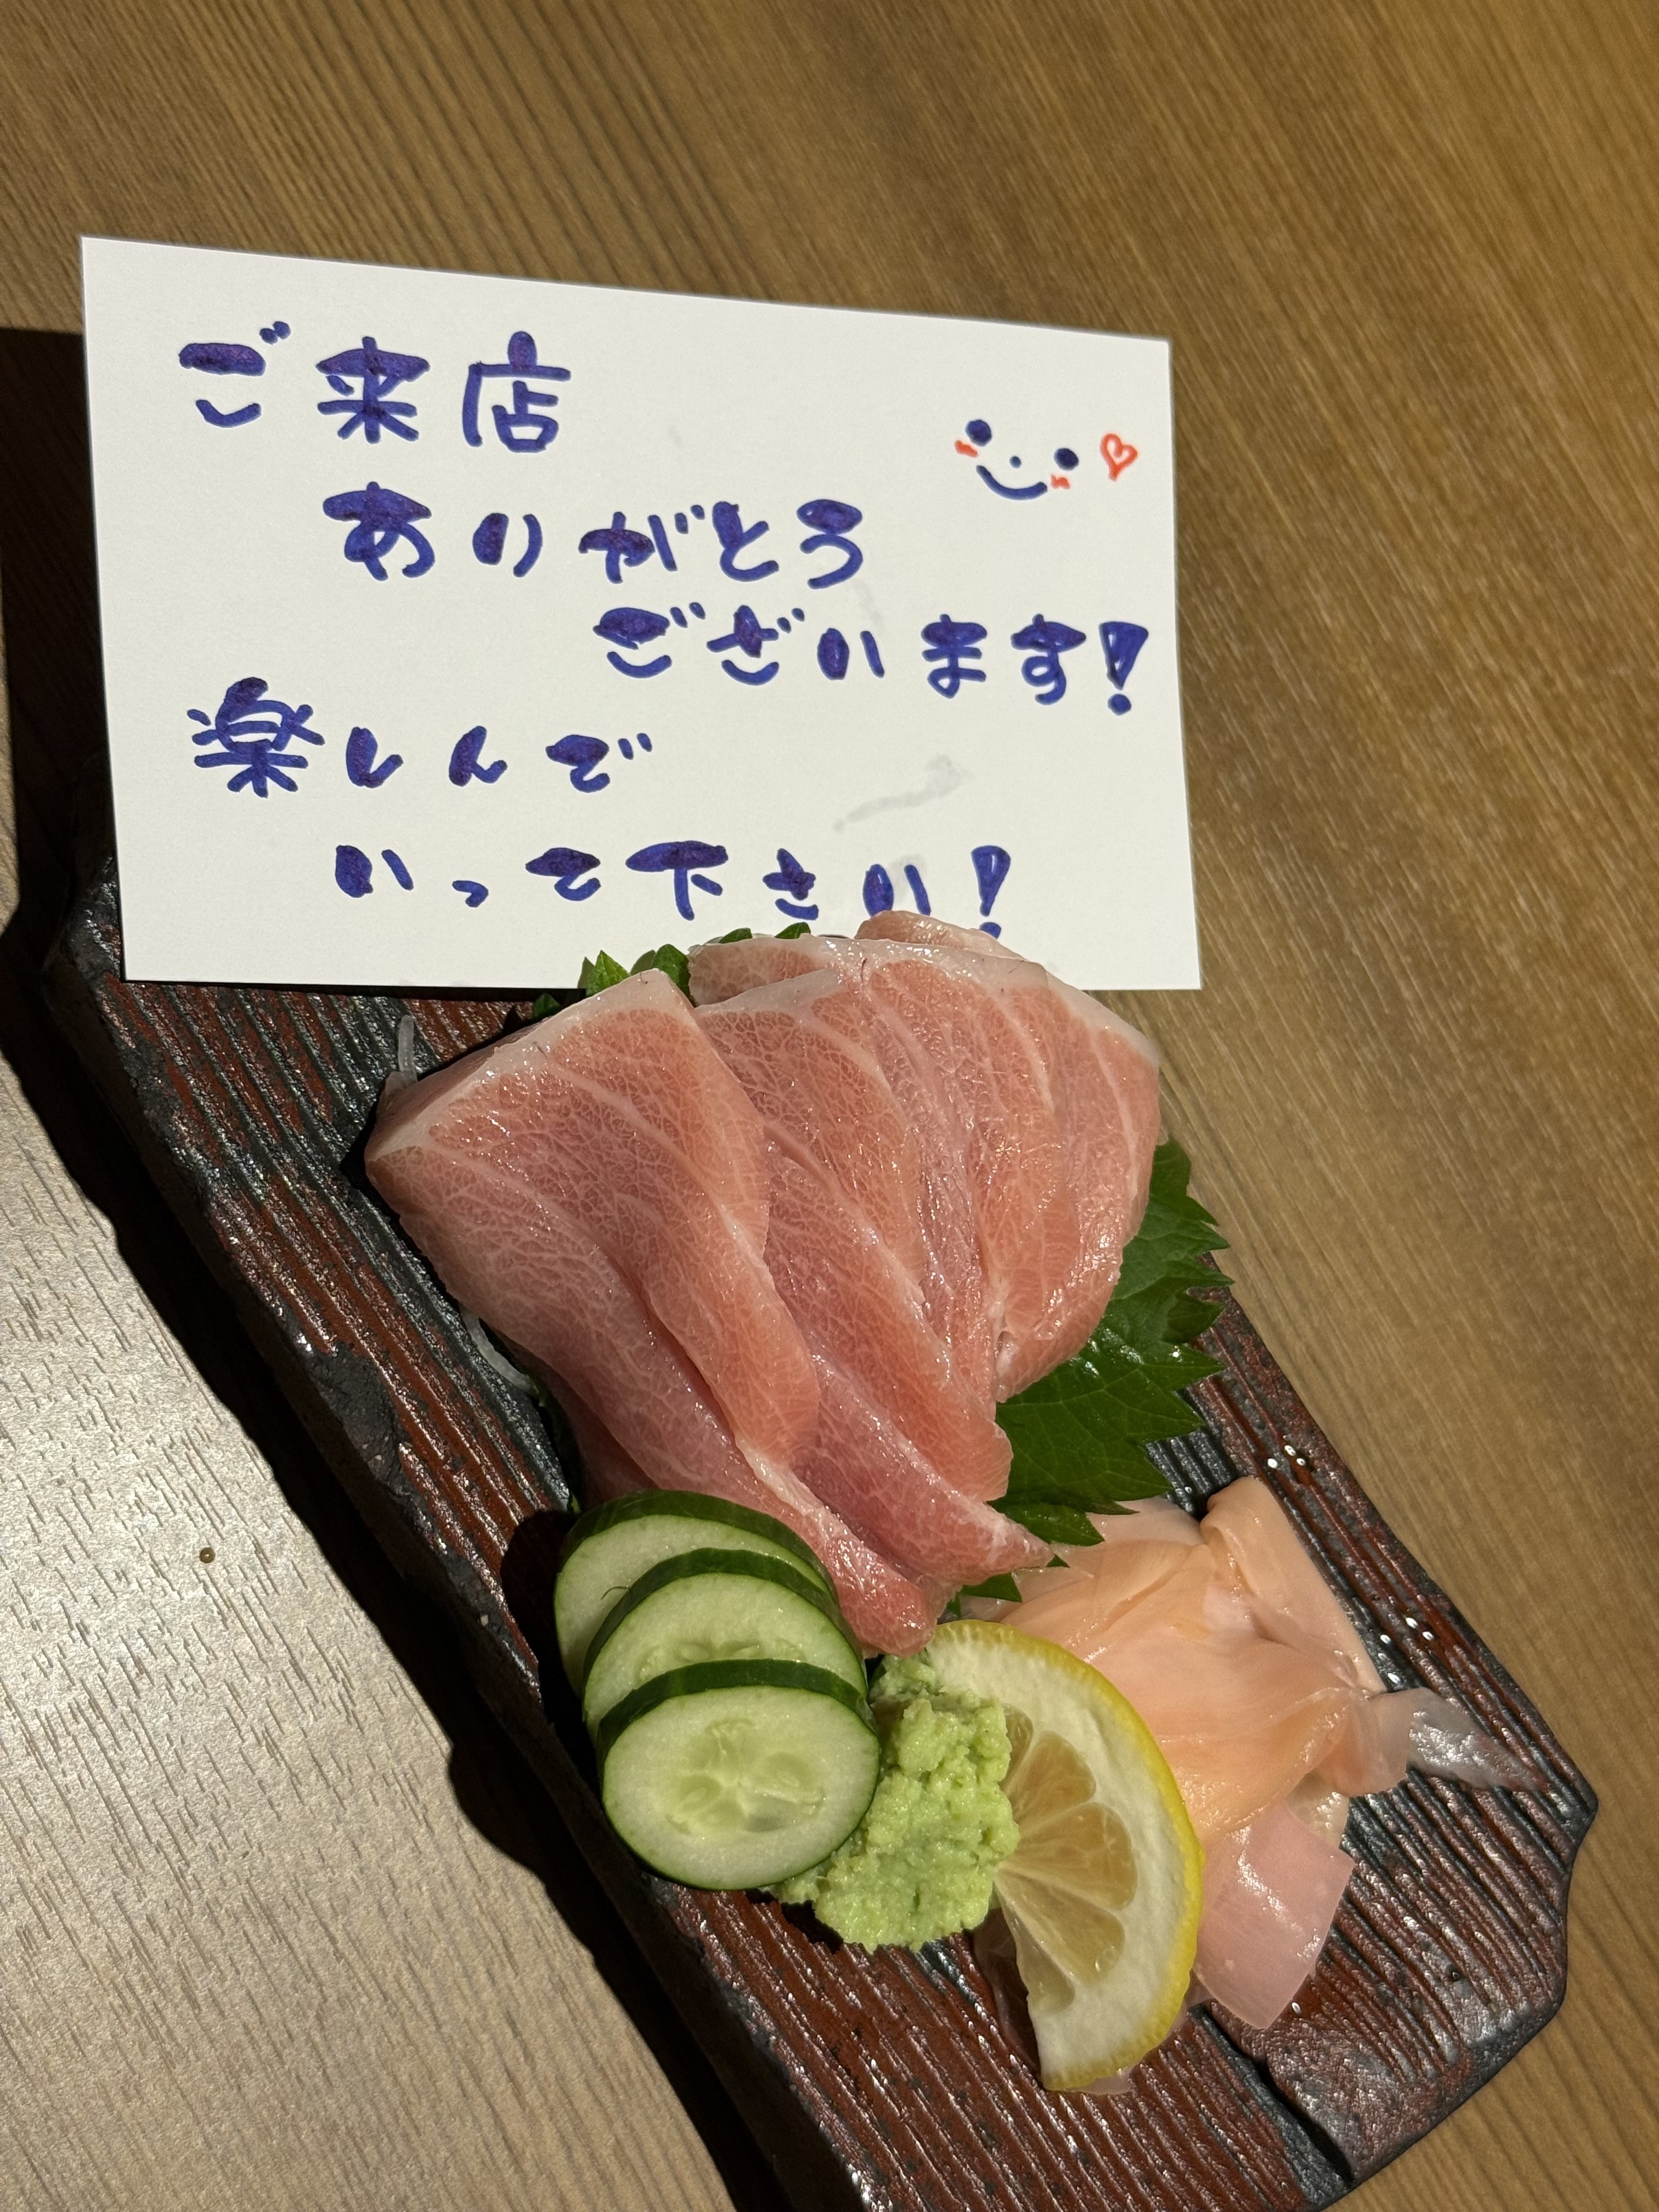 ご来店
ありがとう
ございます!
楽しんで
いって下さい!